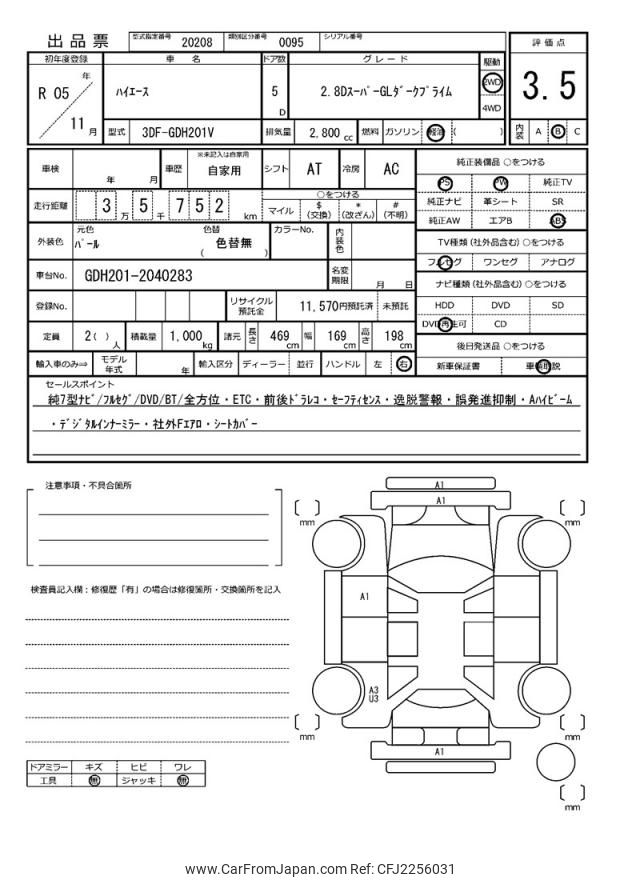 出品票 型式指定番号 20208 類別区分番号 0095 シリアル番号
評価点
3.5
内装 A B C
初年度登録 車名 ドア数 グレード 駆動
R 05 年 11 月
ハイエース
5 D
2.8DスーパーGLダークプライム
2WD
4WD
型式 3DF-GDH201V 排気量 2,800 cc 燃料 ガソリン 軽油 ( )
車検 年 月 車歴 ※未記入は自家用 自家用 シフト AT 冷房 AC
走行距離 3 万 5 千 7 5 2 km
○をつける
マイル $(交換) *(改ざん) #(不明)
外装色 元色 パール 色替 色替無 ( ) カラーNo. 内装色
車台No. GDH201-2040283 名変期限 月 日
登録No. リサイクル預託金 11,570円預託済 未預託
定員 2( )人 積載量 1,000 kg 諸元 長さ 469 cm 幅 169 cm 高さ 198 cm
輸入車のみ⇒ モデル年式 年 輸入区分 ディーラー 並行 ハンドル 左 右
純正装備品 ○をつける
PS PW 純正TV
純正ナビ 革シート SR
純正AW エアB ABS
TV種類(社外品含む)○をつける
フルセグ ワンセグ アナログ
ナビ種類(社外品含む)○をつける
HDD DVD SD
DVD再生可 CD
後日発送品 ○をつける
新車保証書 車輌取説
セールスポイント
純7型ナビ/フルセグ/DVD/BT/全方位・ETC・前後ドラレコ・セーフティセンス・逸脱警報・誤発進抑制・Aハイビーム
・デジタルインナーミラー・社外Fエアロ・シートカバー
注意事項・不具合箇所
検査員記入欄:修復歴「有」の場合は修復箇所・交換箇所を記入
ドアミラー キズ ヒビ ワレ
工具 無 ジャッキ 無
A1
A1
[ ] mm
[ ] mm
A1
A3
U3
[ ] mm
[ ] mm
A1
[ ] mm
www.CarFromJapan.com Ref: CFJ2256031